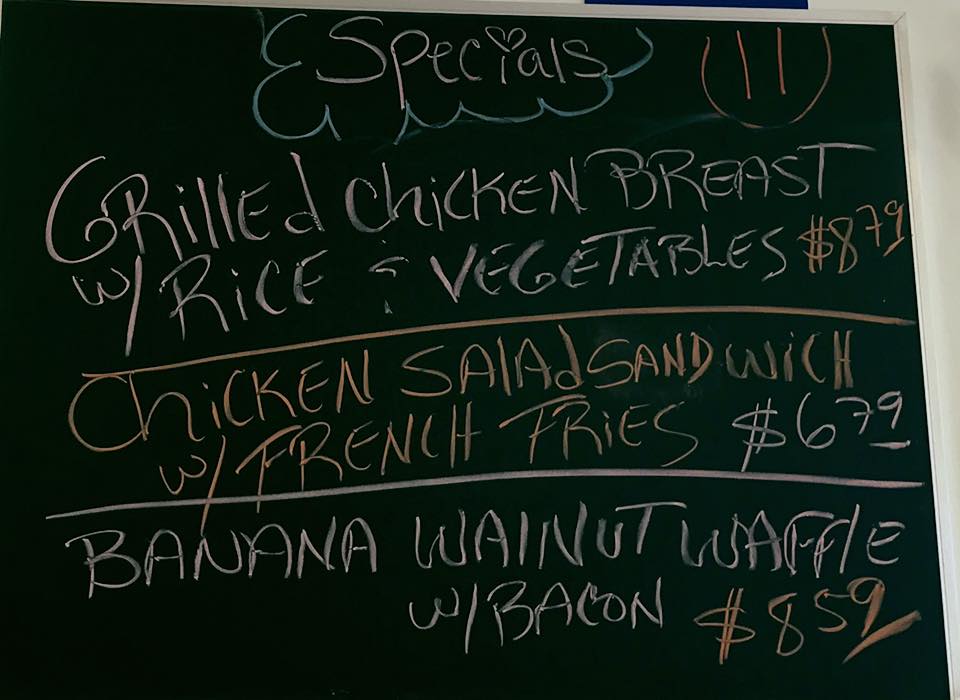 Specials
GRillEd ChiCKEN BREAST
w/ RiCE & VEGETABLES $8 79
ChiCKEN SAlAd SANDWiCH
w/ FRENCH FRiES $6 79
BANANA WAlNUT WAFFlE
w/ BACON $8 59